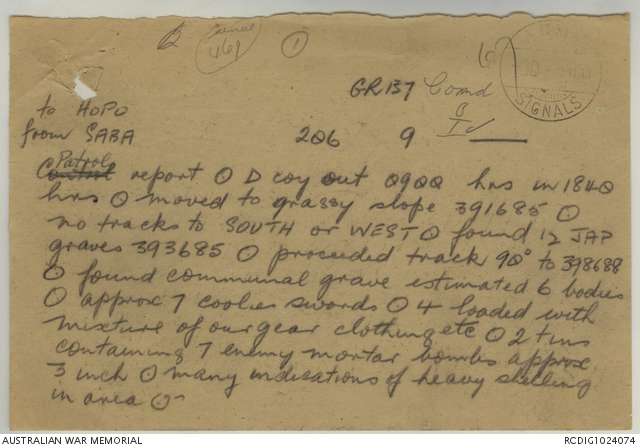 ①
GR 137 Comd
to HOPO
from SABA 206 9 —
Patrol report O D coy out 0900 hrs in 1840
hrs O moved to grassy slope 391685 O
no tracks to SOUTH or WEST O found 12 JAP
graves 393685 O proceeded track 90° to 398688
O found communal grave estimated 6 bodies
O approx 7 coolies swords O 4 loaded with
mixture of our gear clothing etc O 2 tins
containing 7 enemy mortar bombs approx
3 inch O many indications of heavy shelling
in area O
SIGNALS
AUSTRALIAN WAR MEMORIAL
RCDIG1024074